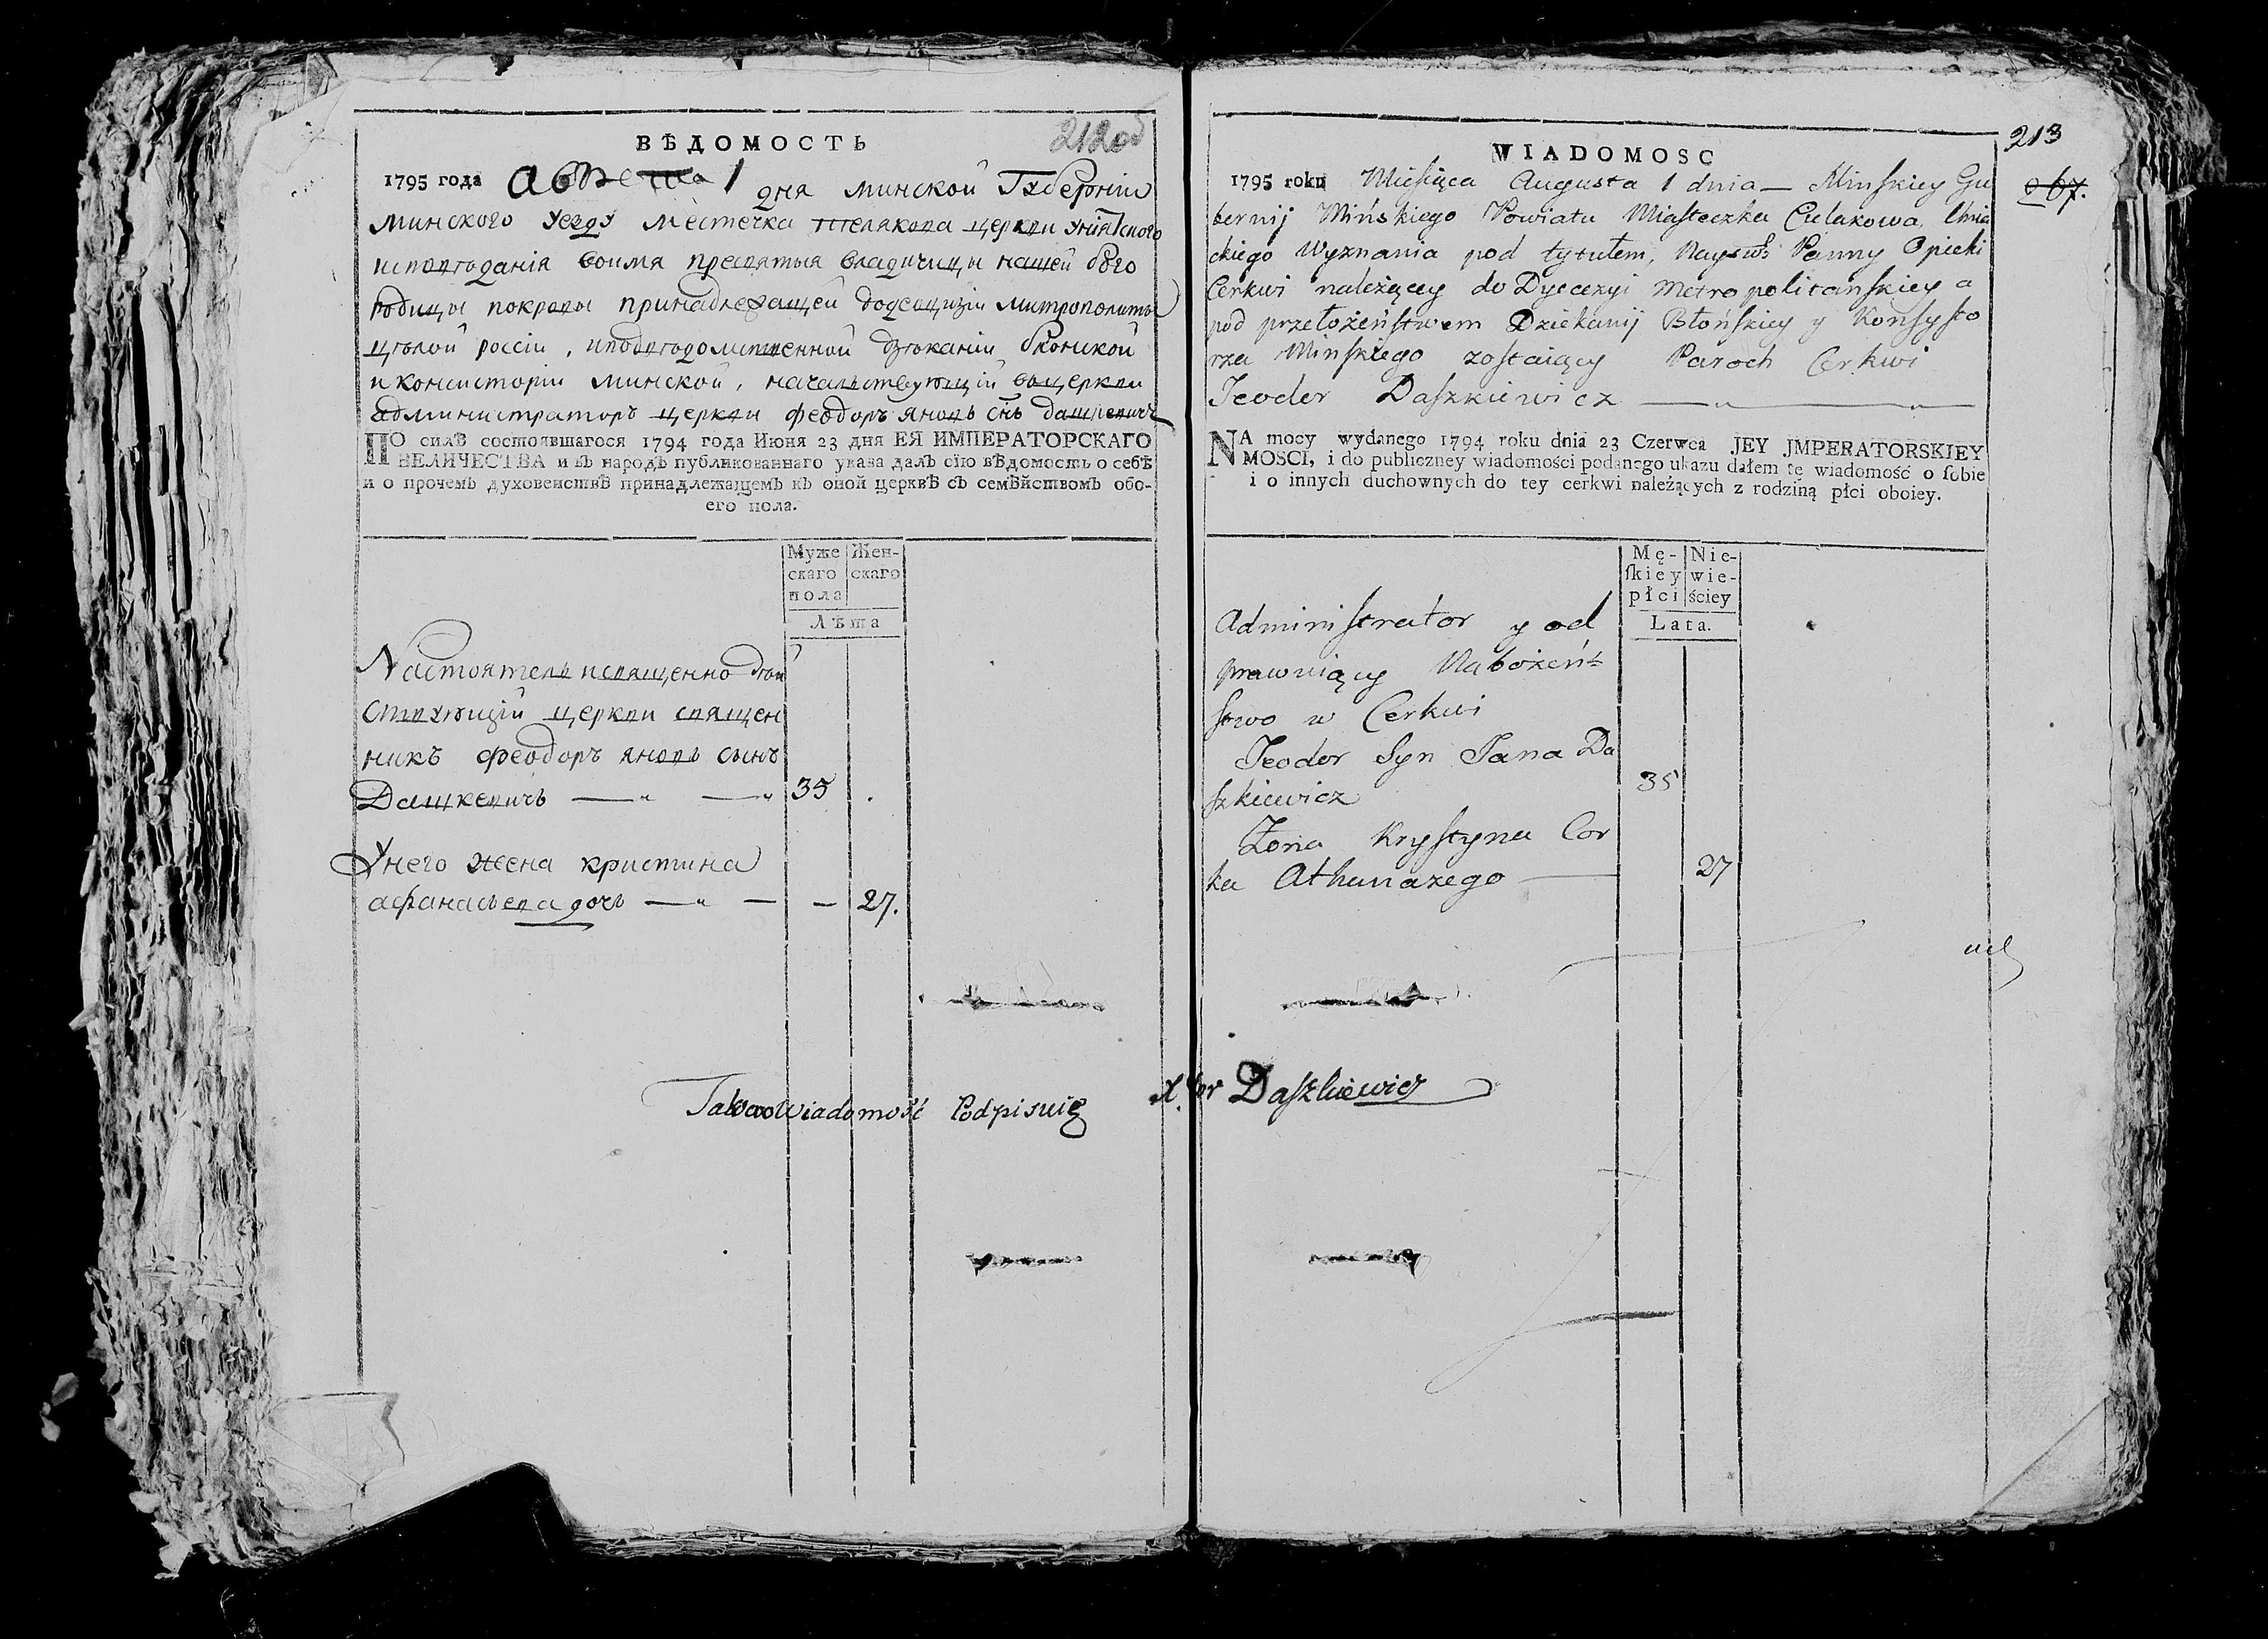 212об
ВѢДОМОСТЬ
1795 года августа 1 дня минской Губерніи
минского уезду местечка церкви уніятского
исповѣданія воимя пресвятыя владичицы нашей бого
родицы покровы принадлежащей митрополиты
цѣлой россіи, деканіи блонской
и консисторіи минской, началствующій вцеркви
администраторъ церкви феодоръ яновъ снъ дашкевичъ
ПО силѣ состоявшагося 1794 года Июня 23 дня ЕЯ ИМПЕРАТОРСКАГО
ВЕЛИЧЕСТВА и въ народъ публикованнаго указа далъ сїю вѣдомость о себѣ
и о прочемъ духовенствѣ принадлежащемъ къ оной церквѣ съ семѣйствомъ обо-
его пола.
Муже Жен-
скаго скаго
пола
Лѣта
Настоятель исвященно дѣй
ствующій церкви священ
никъ феодоръ яновъ сынъ
Дашкевичъ — " — " 35 .
Унего жена кристина
афанасьева дочь — " — — 27.
Takowo Wiadomość Podpisuię
213
67.
WIADOMOSC
1795 roku Miesiąca Augusta 1 dnia — Minskiey Gu
bernij Mińskiego Powiatu Miasteczka Cielakowa, Unia
ckiego Wyznania pod tytułem, Nayśw: Panny Opieki
Cerkwi należącey do Dyecezyi Metropolitańskiey a
pod przełożeństwem Dziekanij Błońskiey y Konsysto
rza Minskiego zostaiący Paroch Cerkwi
Teodor Daszkiewicz — " — "
NA mocy wydanego 1794 roku dnia 23 Czerwca JEY JMPERATORSKIEY
MOSCI, i do publiczney wiadomości podanego ukazu dałem tę wiadomość o ſobie
i o innych duchownych do tey cerkwi należących z rodziną płci oboiey.
Mę- Nie-
ſkiey wie-
płci ściey
Lata.
Administrator y od
prawuiący Nabożeń-
stwo w Cerkwi
Teodor Syn Jana Da
szkiewicz 35
Żona Krystyna Cor
ka Athanazego — 27
X. Daszkiewicz